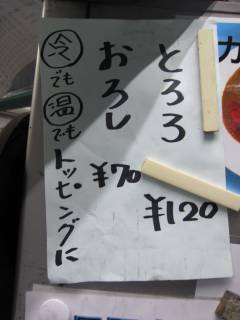 とろろ
¥120
おろし
¥70
冷でも温でもトッピングに
カ